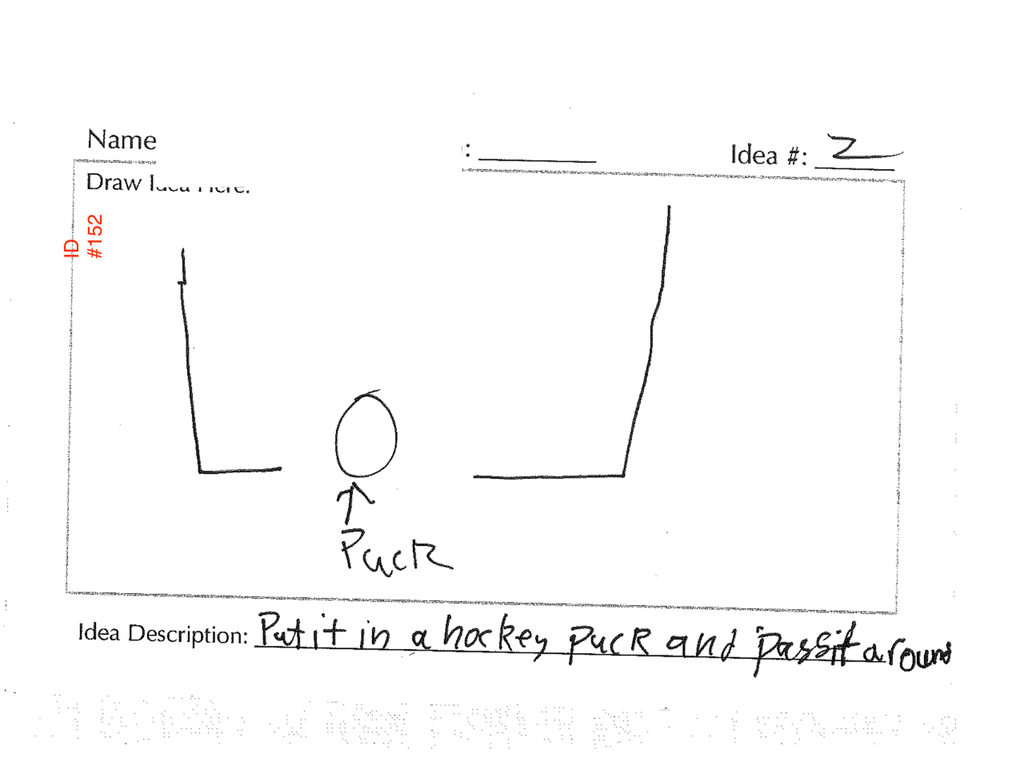 Name : Idea #: 2
Draw Idea Here:
ID
#152
Puck
Idea Description: Put it in a hockey puck and pass it around